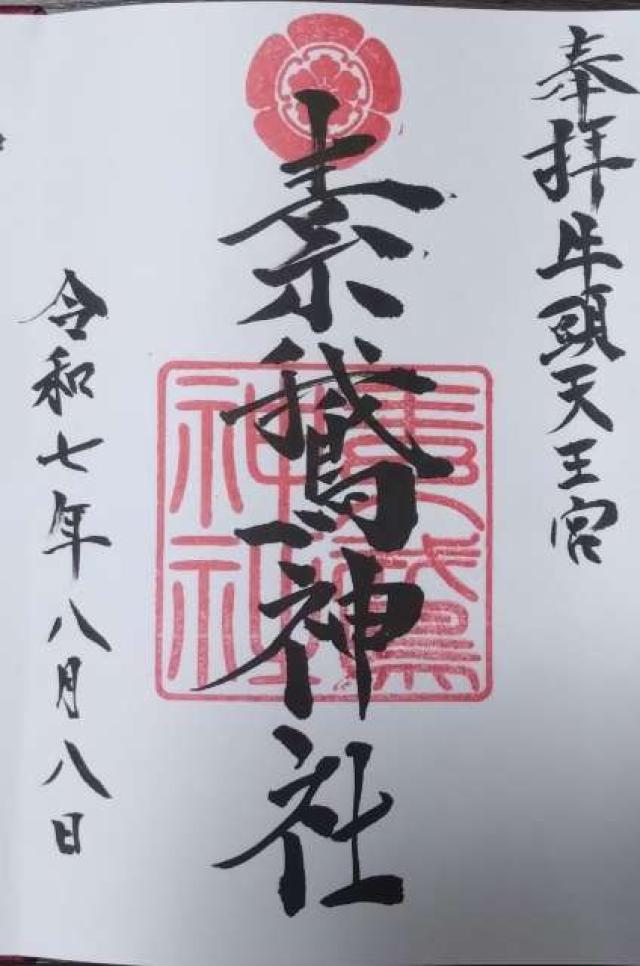 奉拝 牛頭天王宮
素鵞神社
素鵞神社
令和七年八月八日